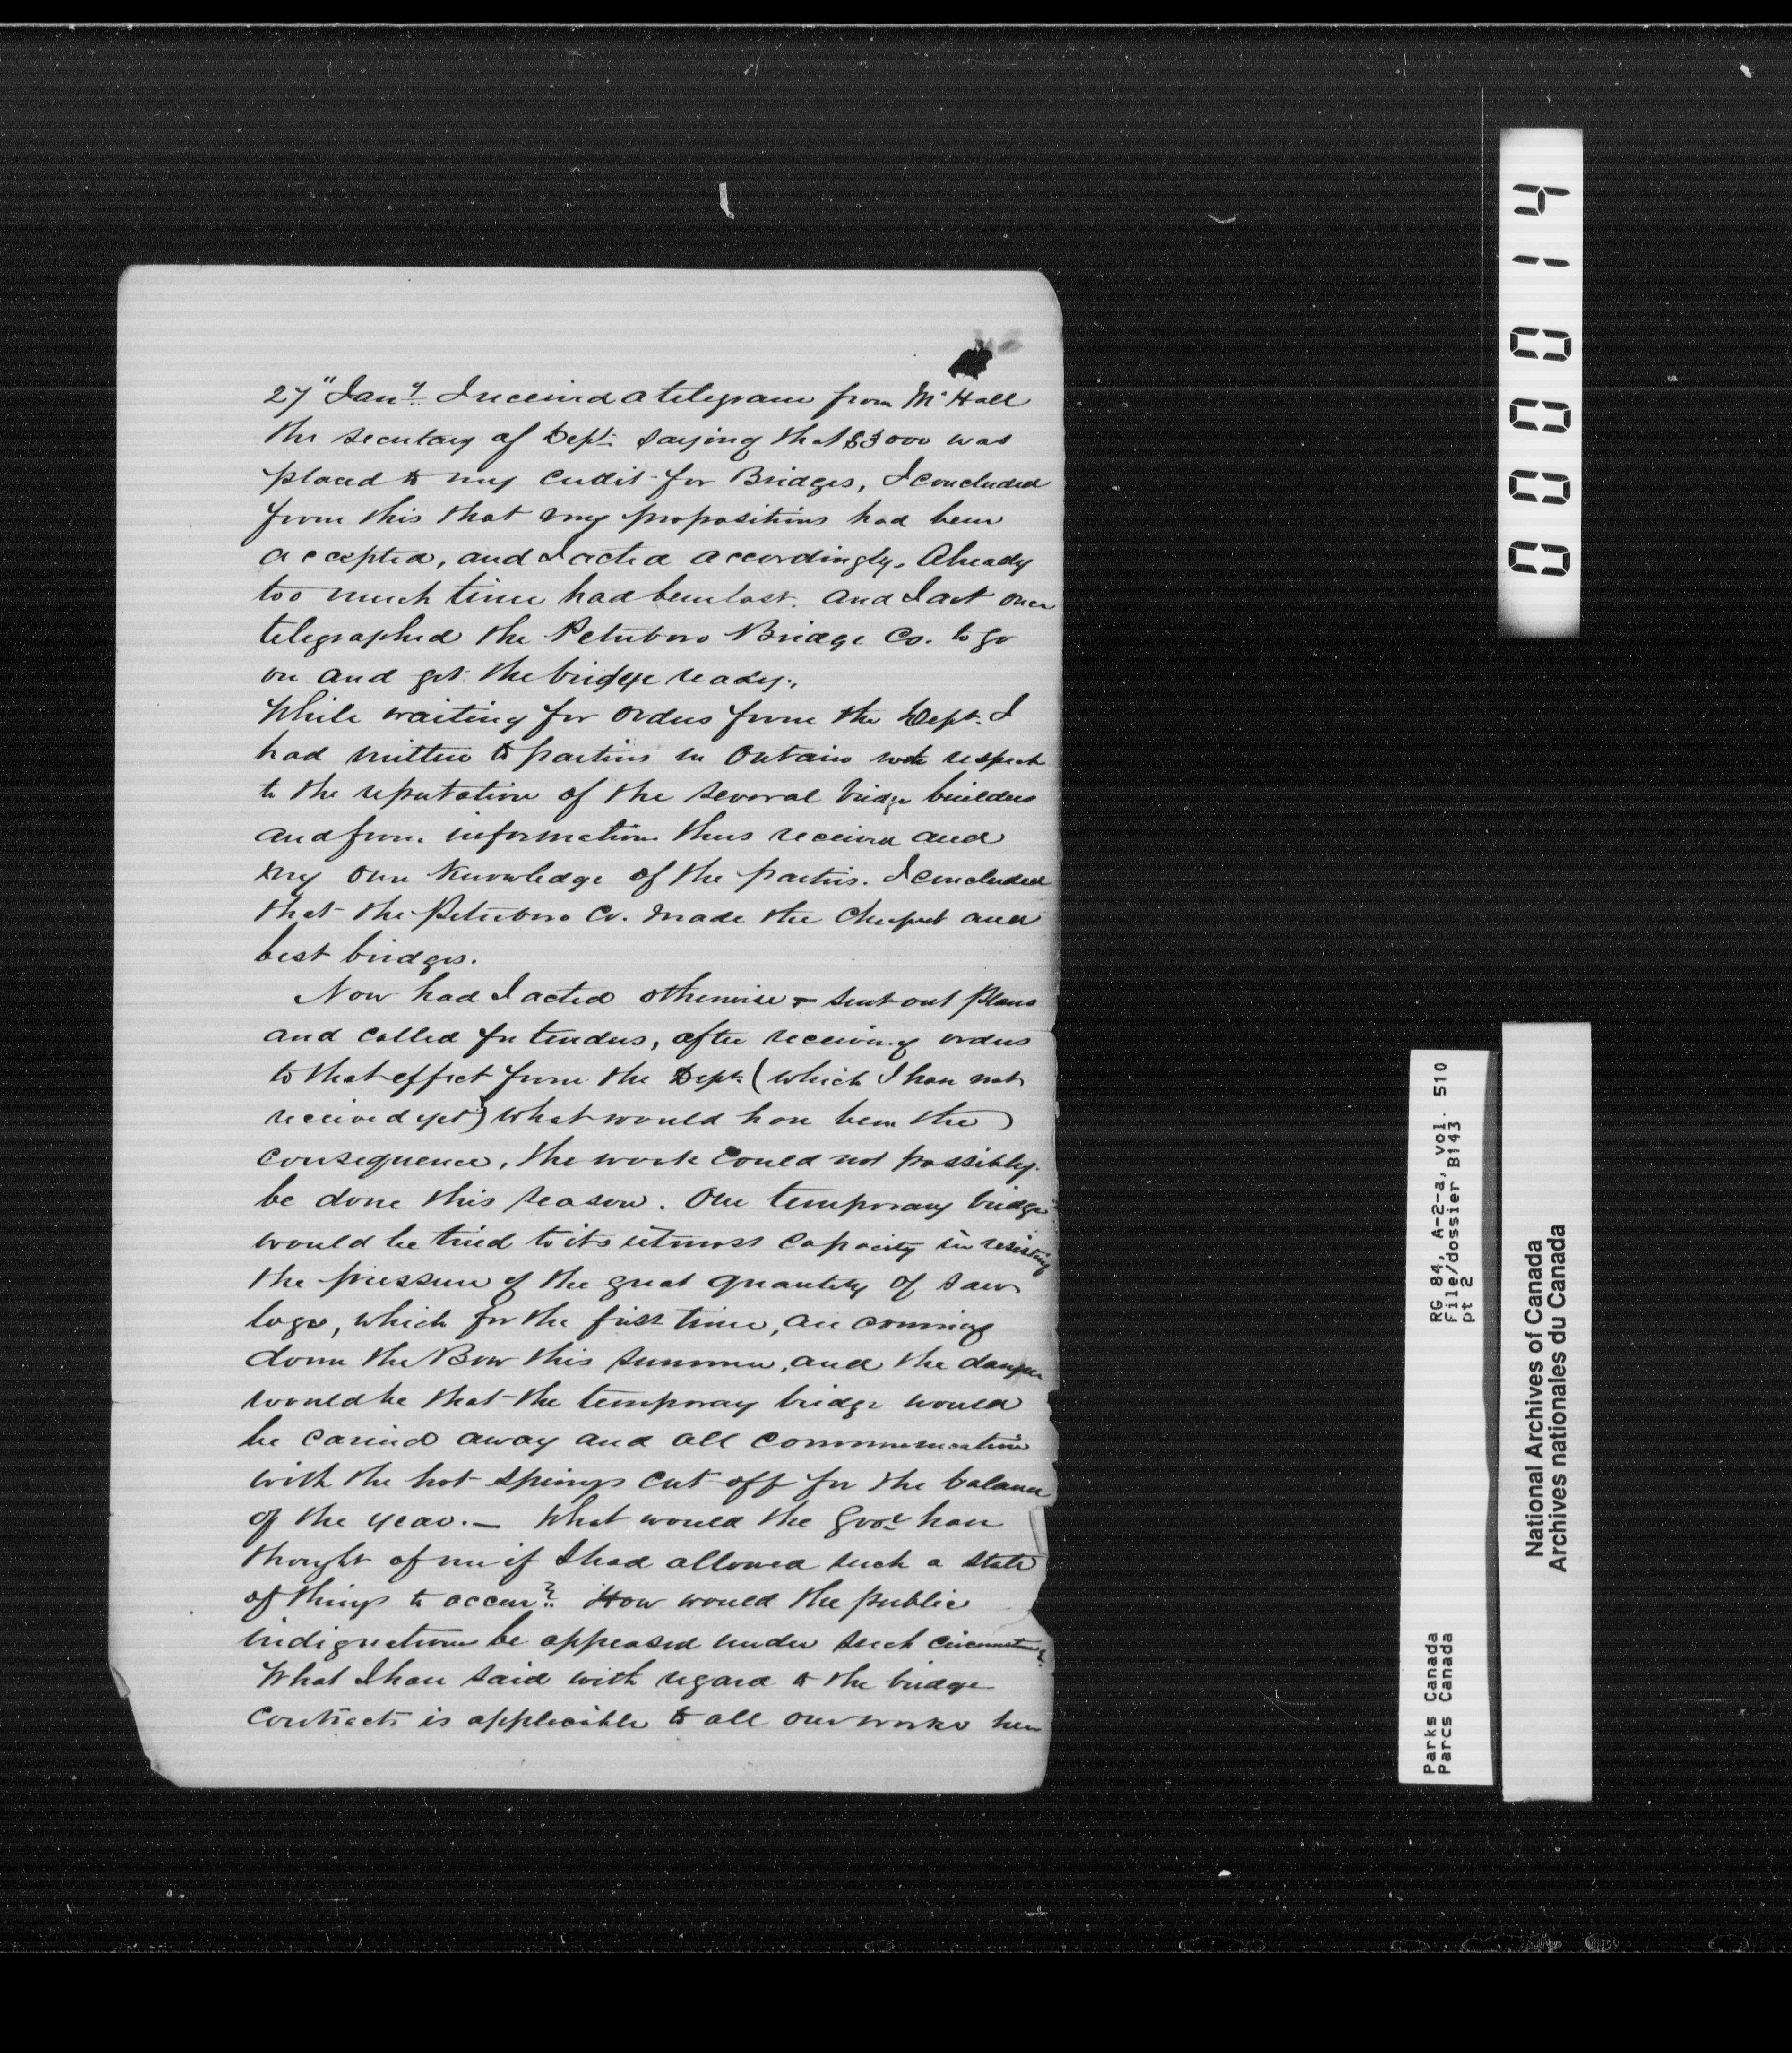 27" Jany. I received a telegram from Mr Hall
the secretary of Dept. saying that $3000 was
placed to my credit for Bridges, I concluded
from this that my propositions had been
accepted, and I acted accordingly. Already
too much time had been lost. and I at once
telegraphed the Peterboro Bridge Co. to go
on and get the bridge ready.
While waiting for orders from the Dept. I
had written to parties in Ontario with respect
to the reputation of the several bridge builders
and from information thus received and
my own knowledge of the parties. I concluded
that the Peterboro Co. made the cheapest and
best bridges.
Now had I acted otherwise - sent out plans
and called for tenders, after receiving orders
to that effect from the Dept. (which I have not
received yet) what would have been the
consequence, the work could not possibly
be done this season. Our temporary bridge
would be tried to its utmost capacity in resisting
the pressure of the great quantity of saw
logs, which for the first time, are coming
down the Bow this summer, and the danger
would be that the temporary bridge would
be carried away and all communication
with the hot springs cut off for the balance
of the year. — What would the Govt have
thought of me if I had allowed such a state
of things to occur? How would the public
indignation be appeased under such circumstances?
What I have said with regard to the bridge
contracts is applicable to all our works here
00014
RG 84, A-2-a, vol. 510
File/dossier B143
pt 2
Parks Canada
Parcs Canada
National Archives of Canada
Archives nationales du Canada